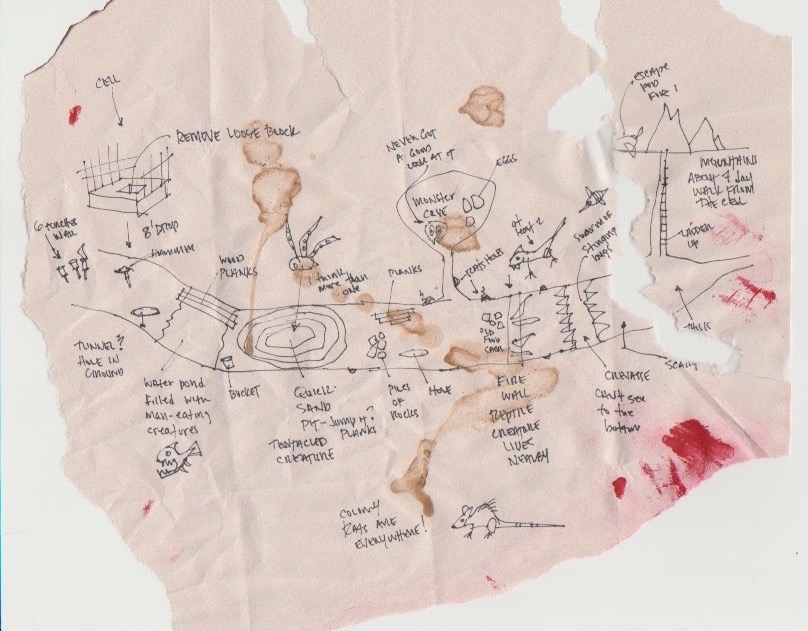 CELL
REMOVE LOOSE BLOCK
6 TORCHES
WALL
8' DROP
HAMMER
WOOD
PLANKS
TUNNEL?
HOLE IN
GROUND
WATER POND
FILLED WITH
MAN-EATING
CREATURES
BUCKET
I THINK
MORE THAN
ONE
QUICK-
SAND
PIT - JUMP IT?
PLANKS
TENTACLED
CREATURE
PLANKS
PILES
OF
ROCKS
HOLE
NEVER GOT
A GOOD
LOOK AT IT
MONSTER
CAVE
EGGS
RATS HOLE
AT
LEAST 2
SWARM OF
STINGING
BUGS
OLD
FOOD
CANS
FIRE
WALL
REPTILE
CREATURE
LIVES
NEARBY
CREVASSE
CAN'T SEE
TO THE
BOTTOM
ESCAPE
POD
FOR 1
MOUNTAINS
ABOUT 4 DAY
WALK FROM
THE CELL
LADDER
UP
THIS IS
SCARY
COLONY
RATS ARE
EVERYWHERE!